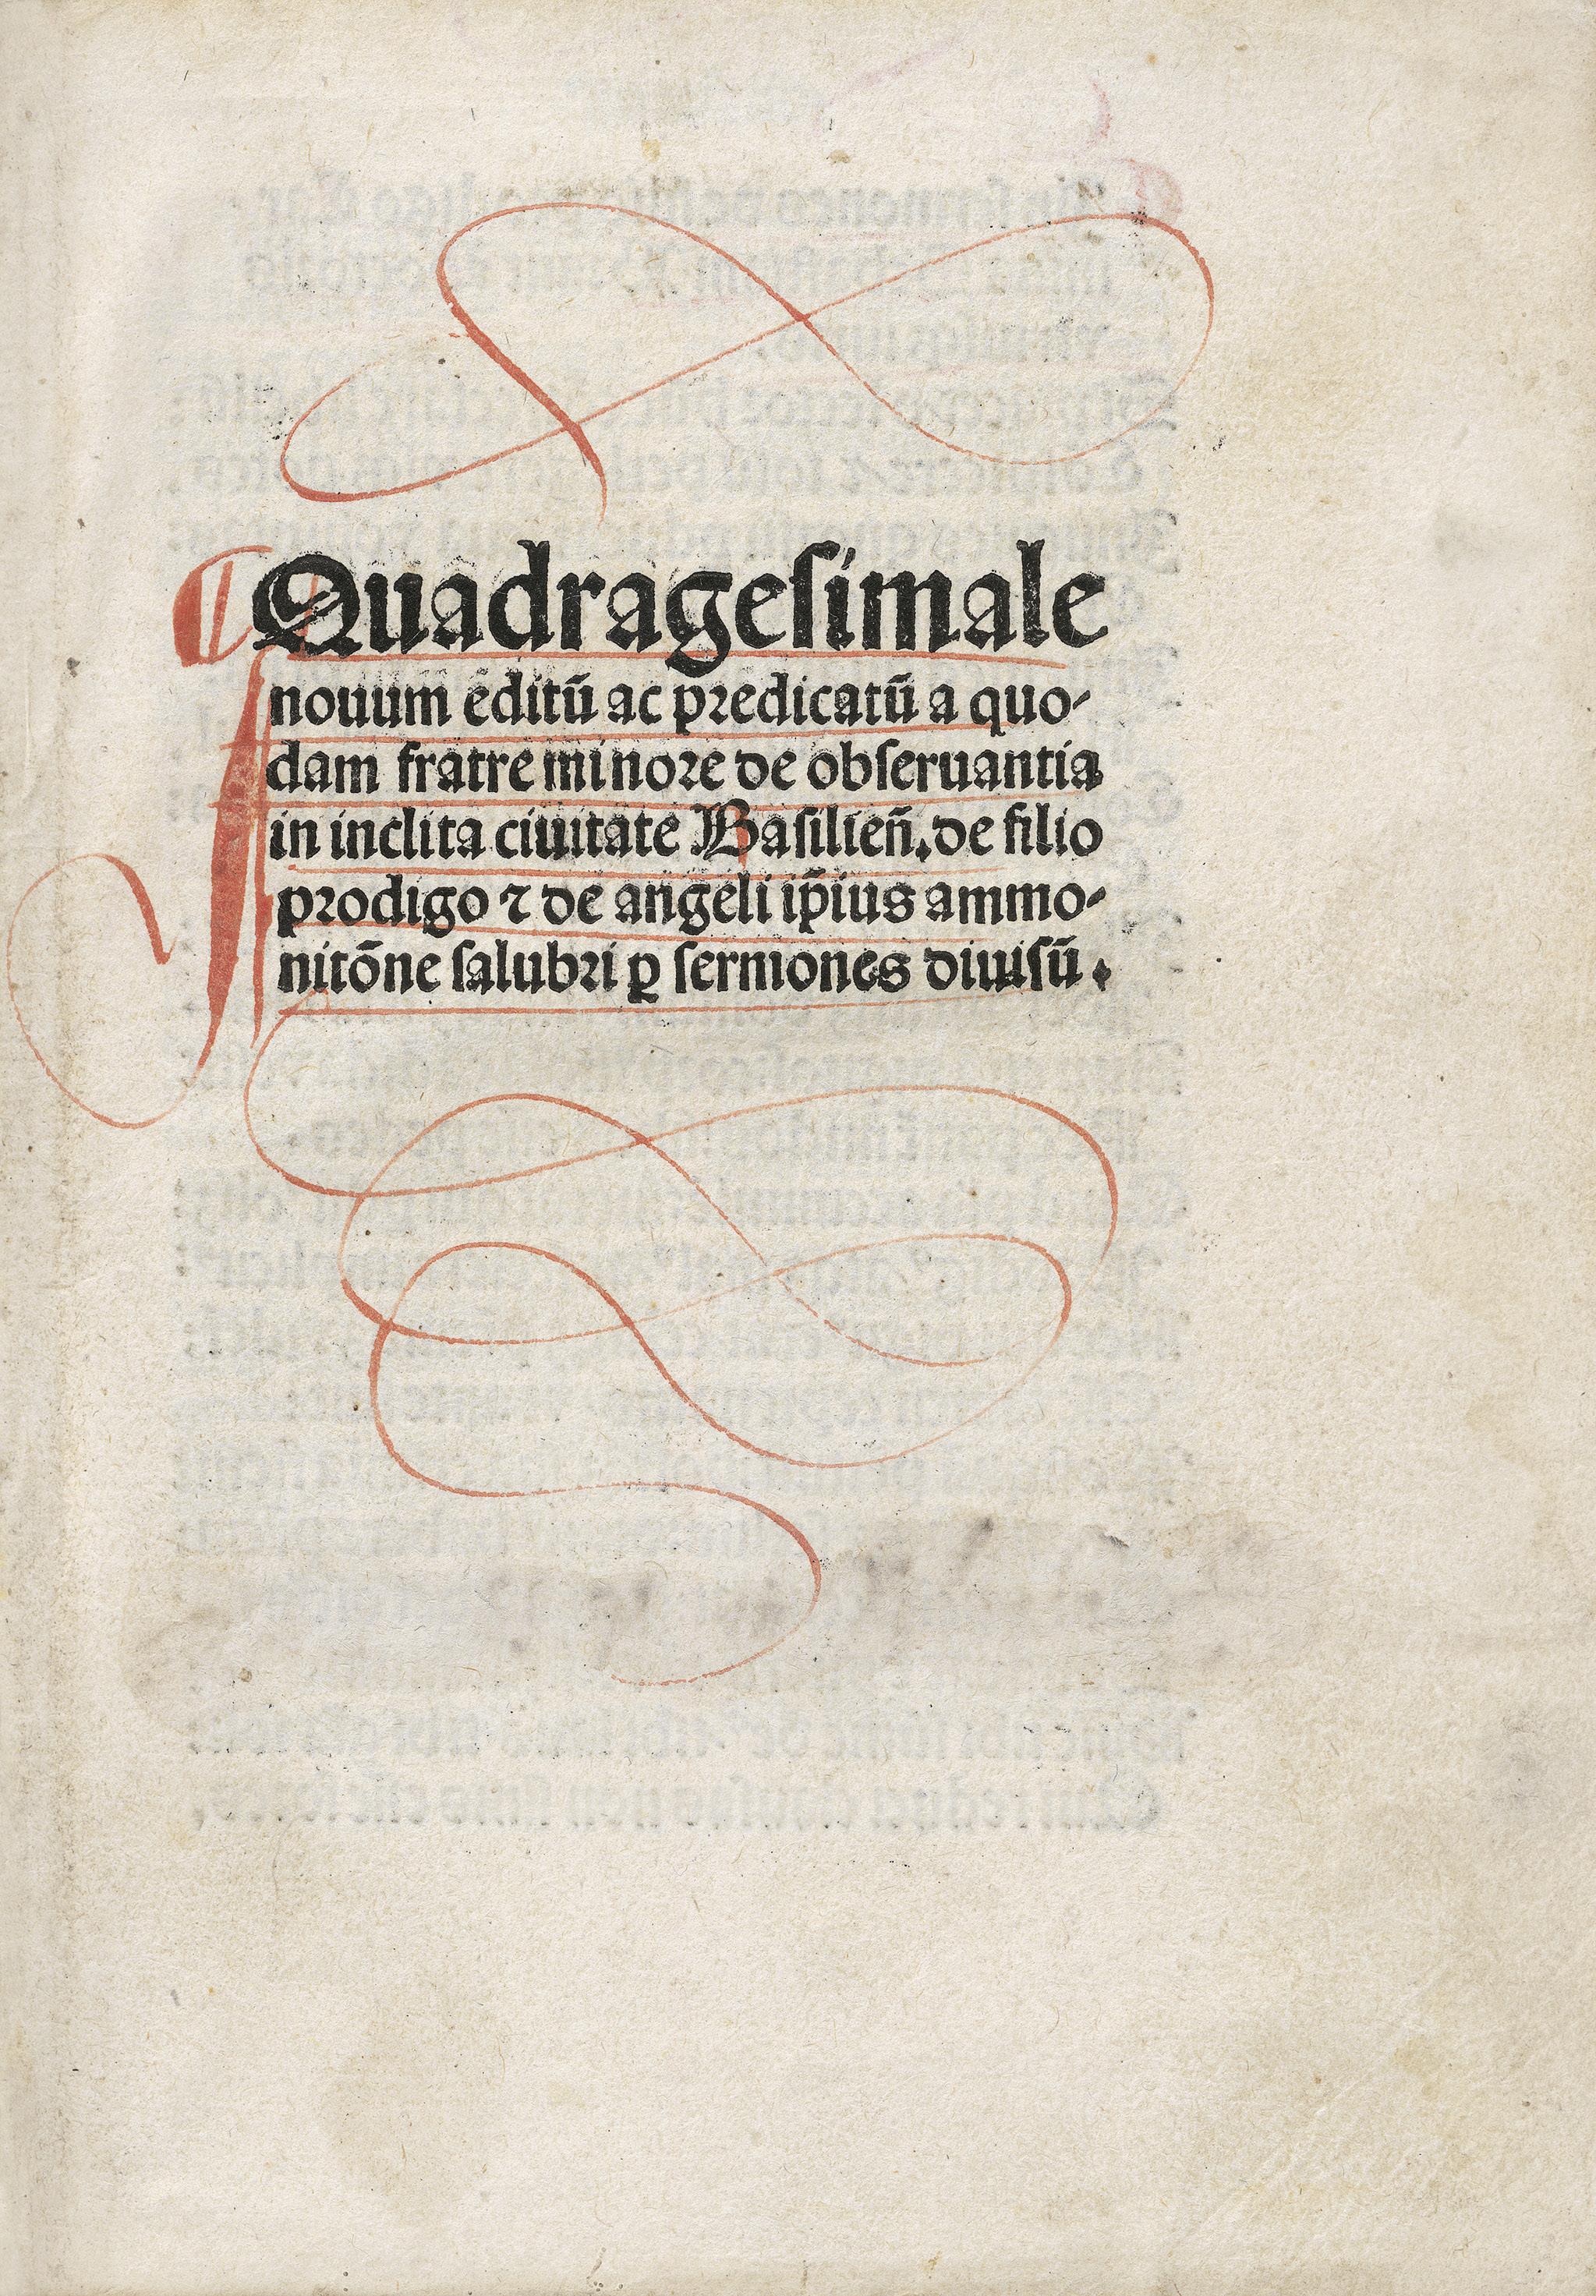 Quadragesimale
nouum editū ac predicatū a quo-
dam fratre minore de obseruantia
in inclita ciuitate Basilieñ. de filio
prodigo ⁊ de angeli ip̄ius ammo-
nitōne salubri ꝑ sermones diuisū.